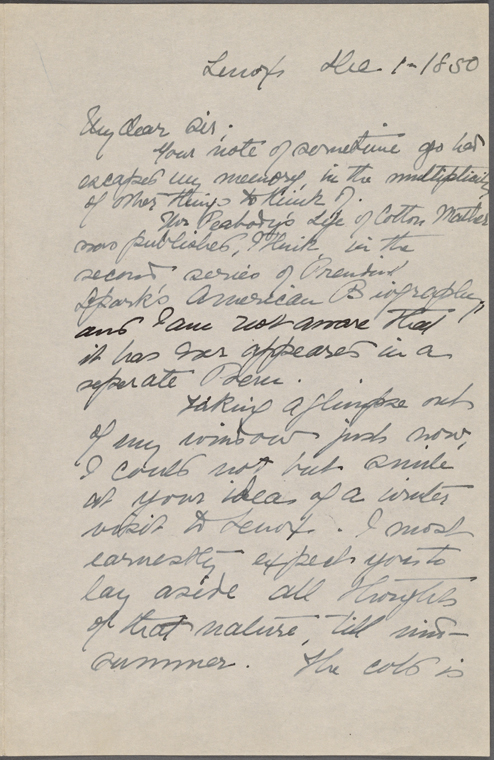 Lenox Dec. 1- 1850
My dear Sir,
Your note of sometime go had
escaped my memory, in the multiplicity
of other things to think of.
Mr Peabody's Life of Cotton Mather
was published, I think, in the
second series of President
Spark's American Biography,"
and I am not aware that
it has ever appeared in a
seperate Form.
Taking a glimpse out
of my window just now,
I could not but smile
at your idea of a winter
visit to Lenox. I most
earnestly expect you to
lay aside all thoughts
of that nature, till mid-
summer. The cold is